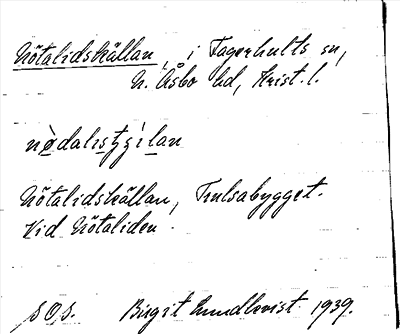 Nötalidskällan, i Fagerhults sn,
N. Åsbo hd, Krist. l.
Nötalidskällan, Trulsabygget.
Vid Nötaliden.
S.O.S. Birgit Lundkvist 1939.